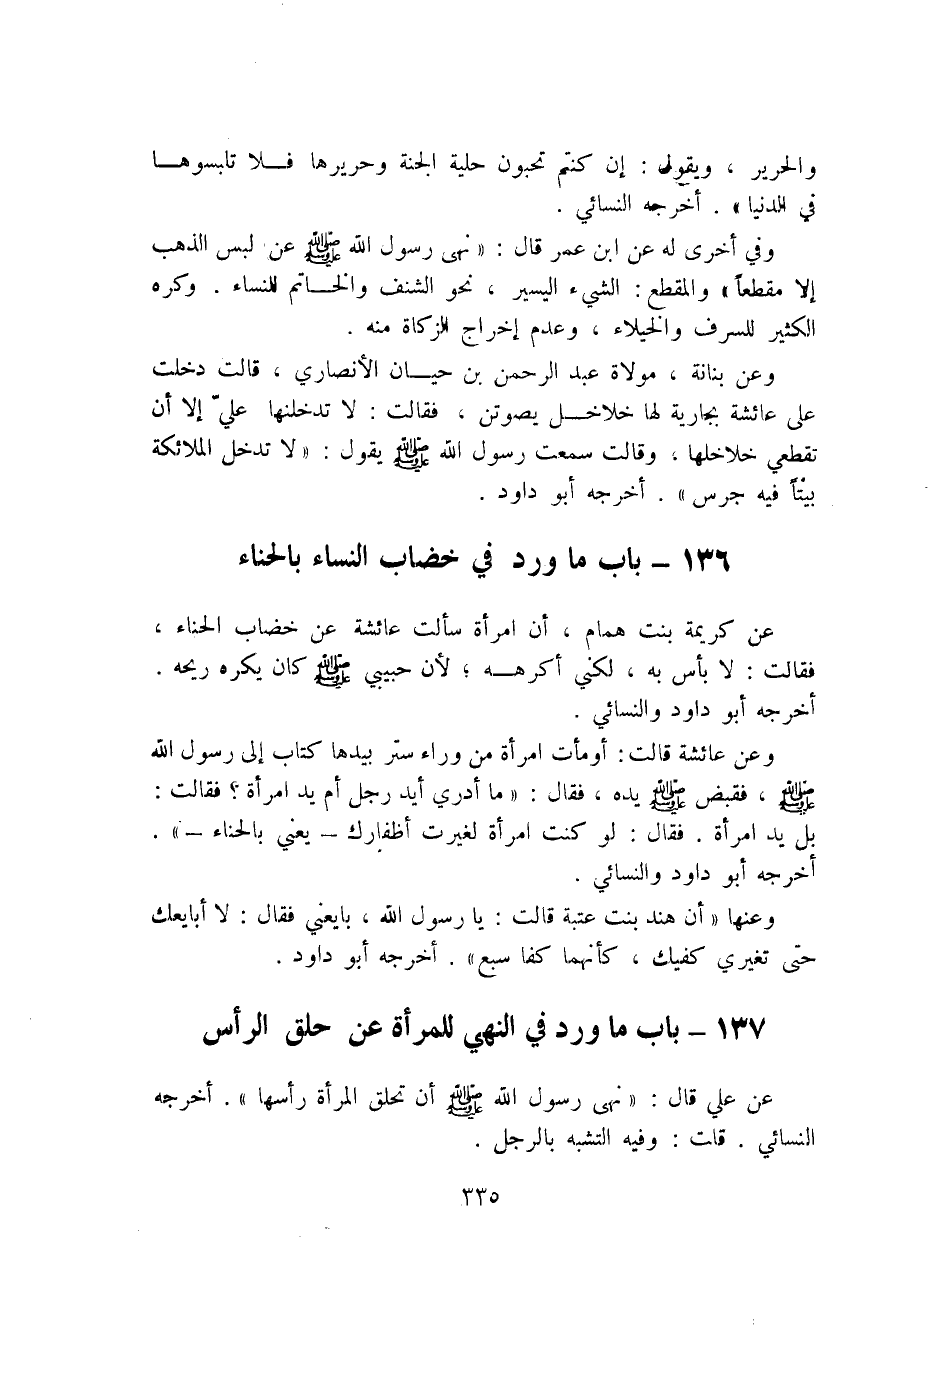 والحرير ، ويقول : إن كنتم تحبون حلية الجنة وحريرها فـــلا تلبسوهــا
في الدنيا » . أخرجه النسائي .
وفي أخرى له عن ابن عمر قال : « نهى رسول الله ﷺ عن لبس الذهب
إلا مقطعاً » والمقطع : الشيء اليسير ، نحو الشنف والخــاتم للنساء . وكره
الكثير للسرف والخيلاء ، وعدم إخراج الزكاة منه .
وعن بنانة ، مولاة عبد الرحمن بن حيــان الأنصاري ، قالت دخلت
على عائشة بجارية لها خلاخــل يصوتن ، فقالت : لا تدخلنها عليّ إلا أن
تقطعي خلاخلها ، وقالت سمعت رسول الله ﷺ يقول : « لا تدخل الملائكة
بيتاً فيه جرس » . أخرجه أبو داود .
١٣٦ – باب ما ورد في خضاب النساء بالحناء
عن كريمة بنت همام ، أن امرأة سألت عائشة عن خضاب الحناء ،
فقالت : لا بأس به ، لكني أكرهــه ؛ لأن حبيبي ﷺ كان يكره ريحه .
أخرجه أبو داود والنسائي .
وعن عائشة قالت : أومأت امرأة من وراء ستر بيدها كتاب إلى رسول الله
ﷺ ، فقبض ﷺ يده ، فقال : « ما أدري أيد رجل أم يد امرأة ؟ فقالت :
بل يد امرأة . فقال : لو كنت امرأة لغيرت أظفارك – يعني بالحناء – » .
أخرجه أبو داود والنسائي .
وعنها « أن هند بنت عتبة قالت : يا رسول الله ، بايعني فقال : لا أبايعك
حتى تغيري كفيك ، كأنهما كفا سبع » . أخرجه أبو داود .
١٣٧ – باب ما ورد في النهي للمرأة عن حلق الرأس
عن علي قال : « نهى رسول الله ﷺ أن تحلق المرأة رأسها » . أخرجه
النسائي . قلت : وفيه التشبه بالرجل .
٣٣٥